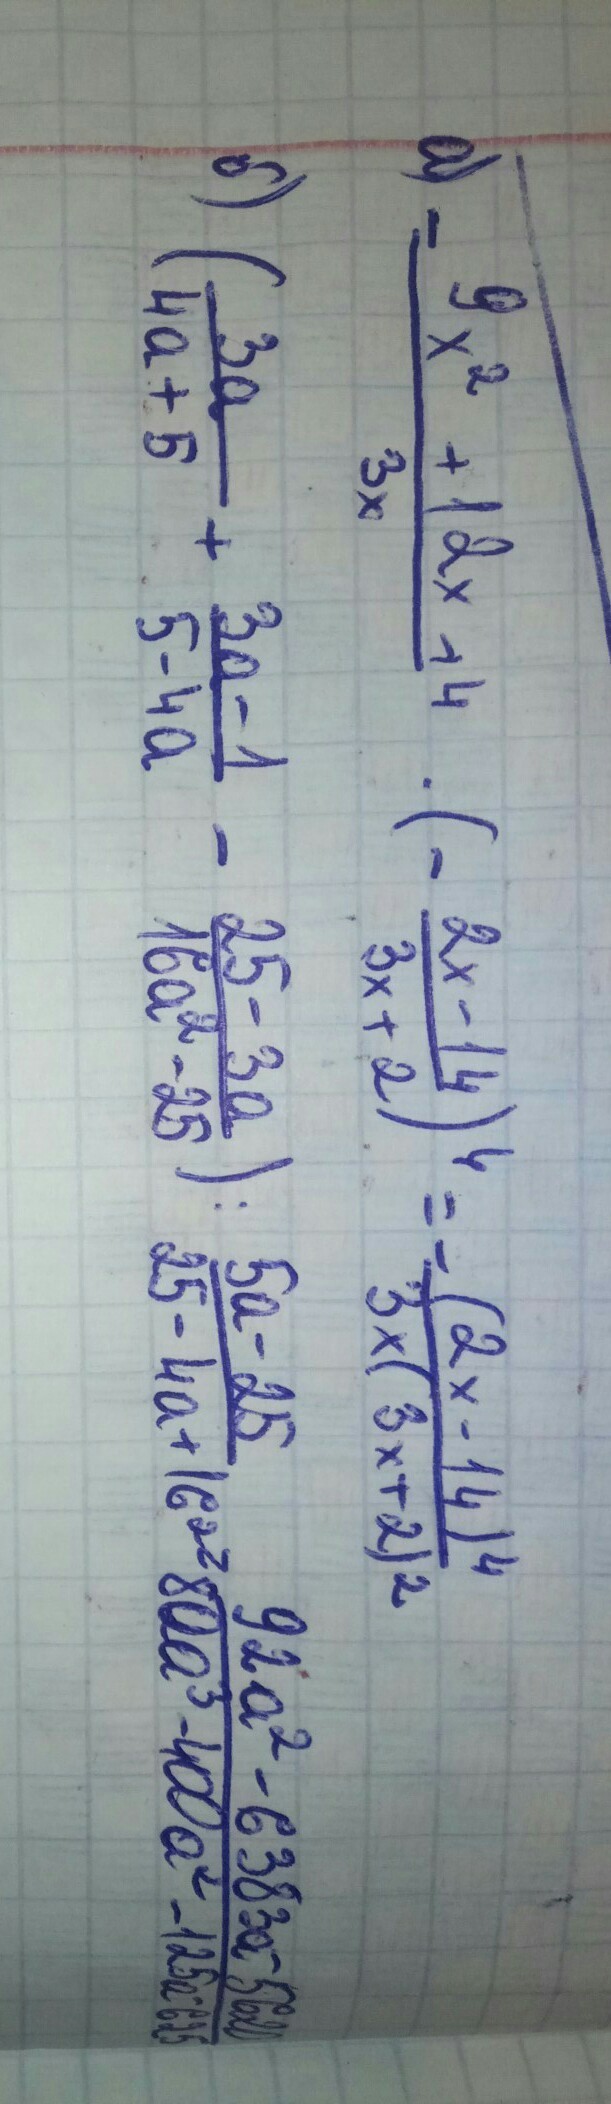 а) - (9x² + 12x + 4)/(3x) · (- (2x - 14)/(3x + 2))⁴ = - (2x - 14)⁴/(3x(3x + 2)²
б) (3a/(4a + 5) + (3a - 1)/(5 - 4a) - (25 - 3a)/(16a² - 25)) : (5a - 25)/(25 - 4a + 16a²) (92a² - 6383a -)/(80a³ - 400a² - 125a)